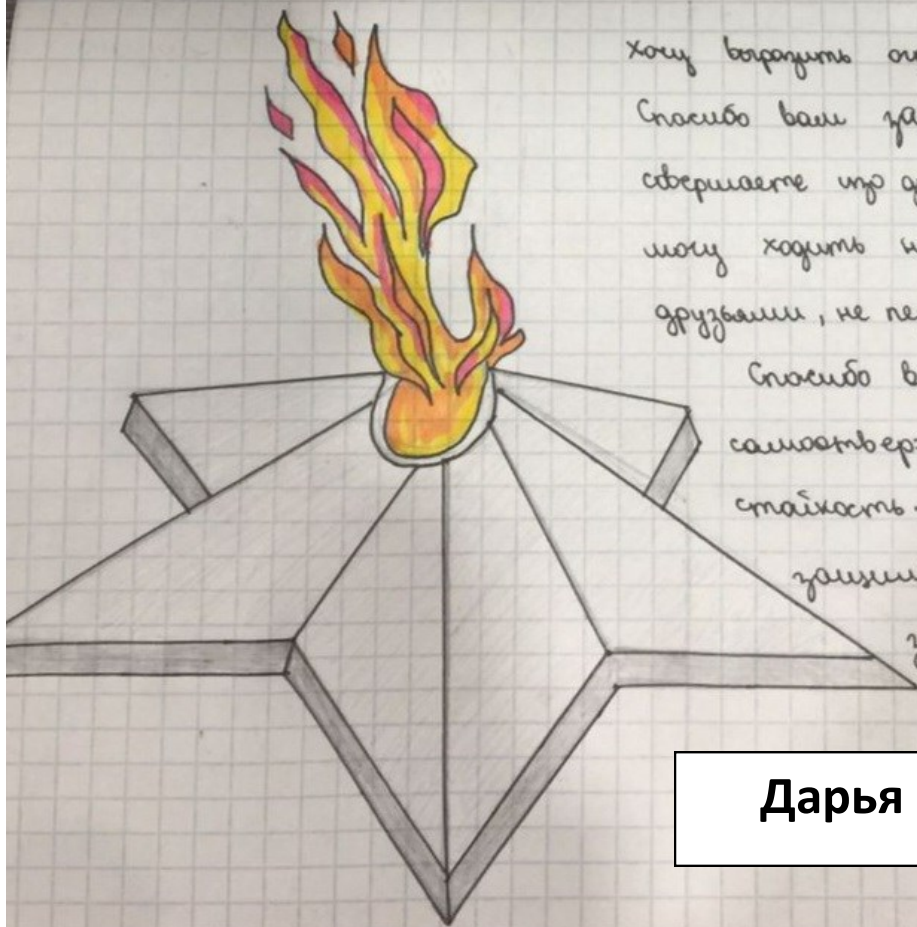 хочу выразить
Спасибо вам за
совершаете изо
могу ходить
друзьями, не
Спасибо
самоотвер
стойкость.
защи
Дарья